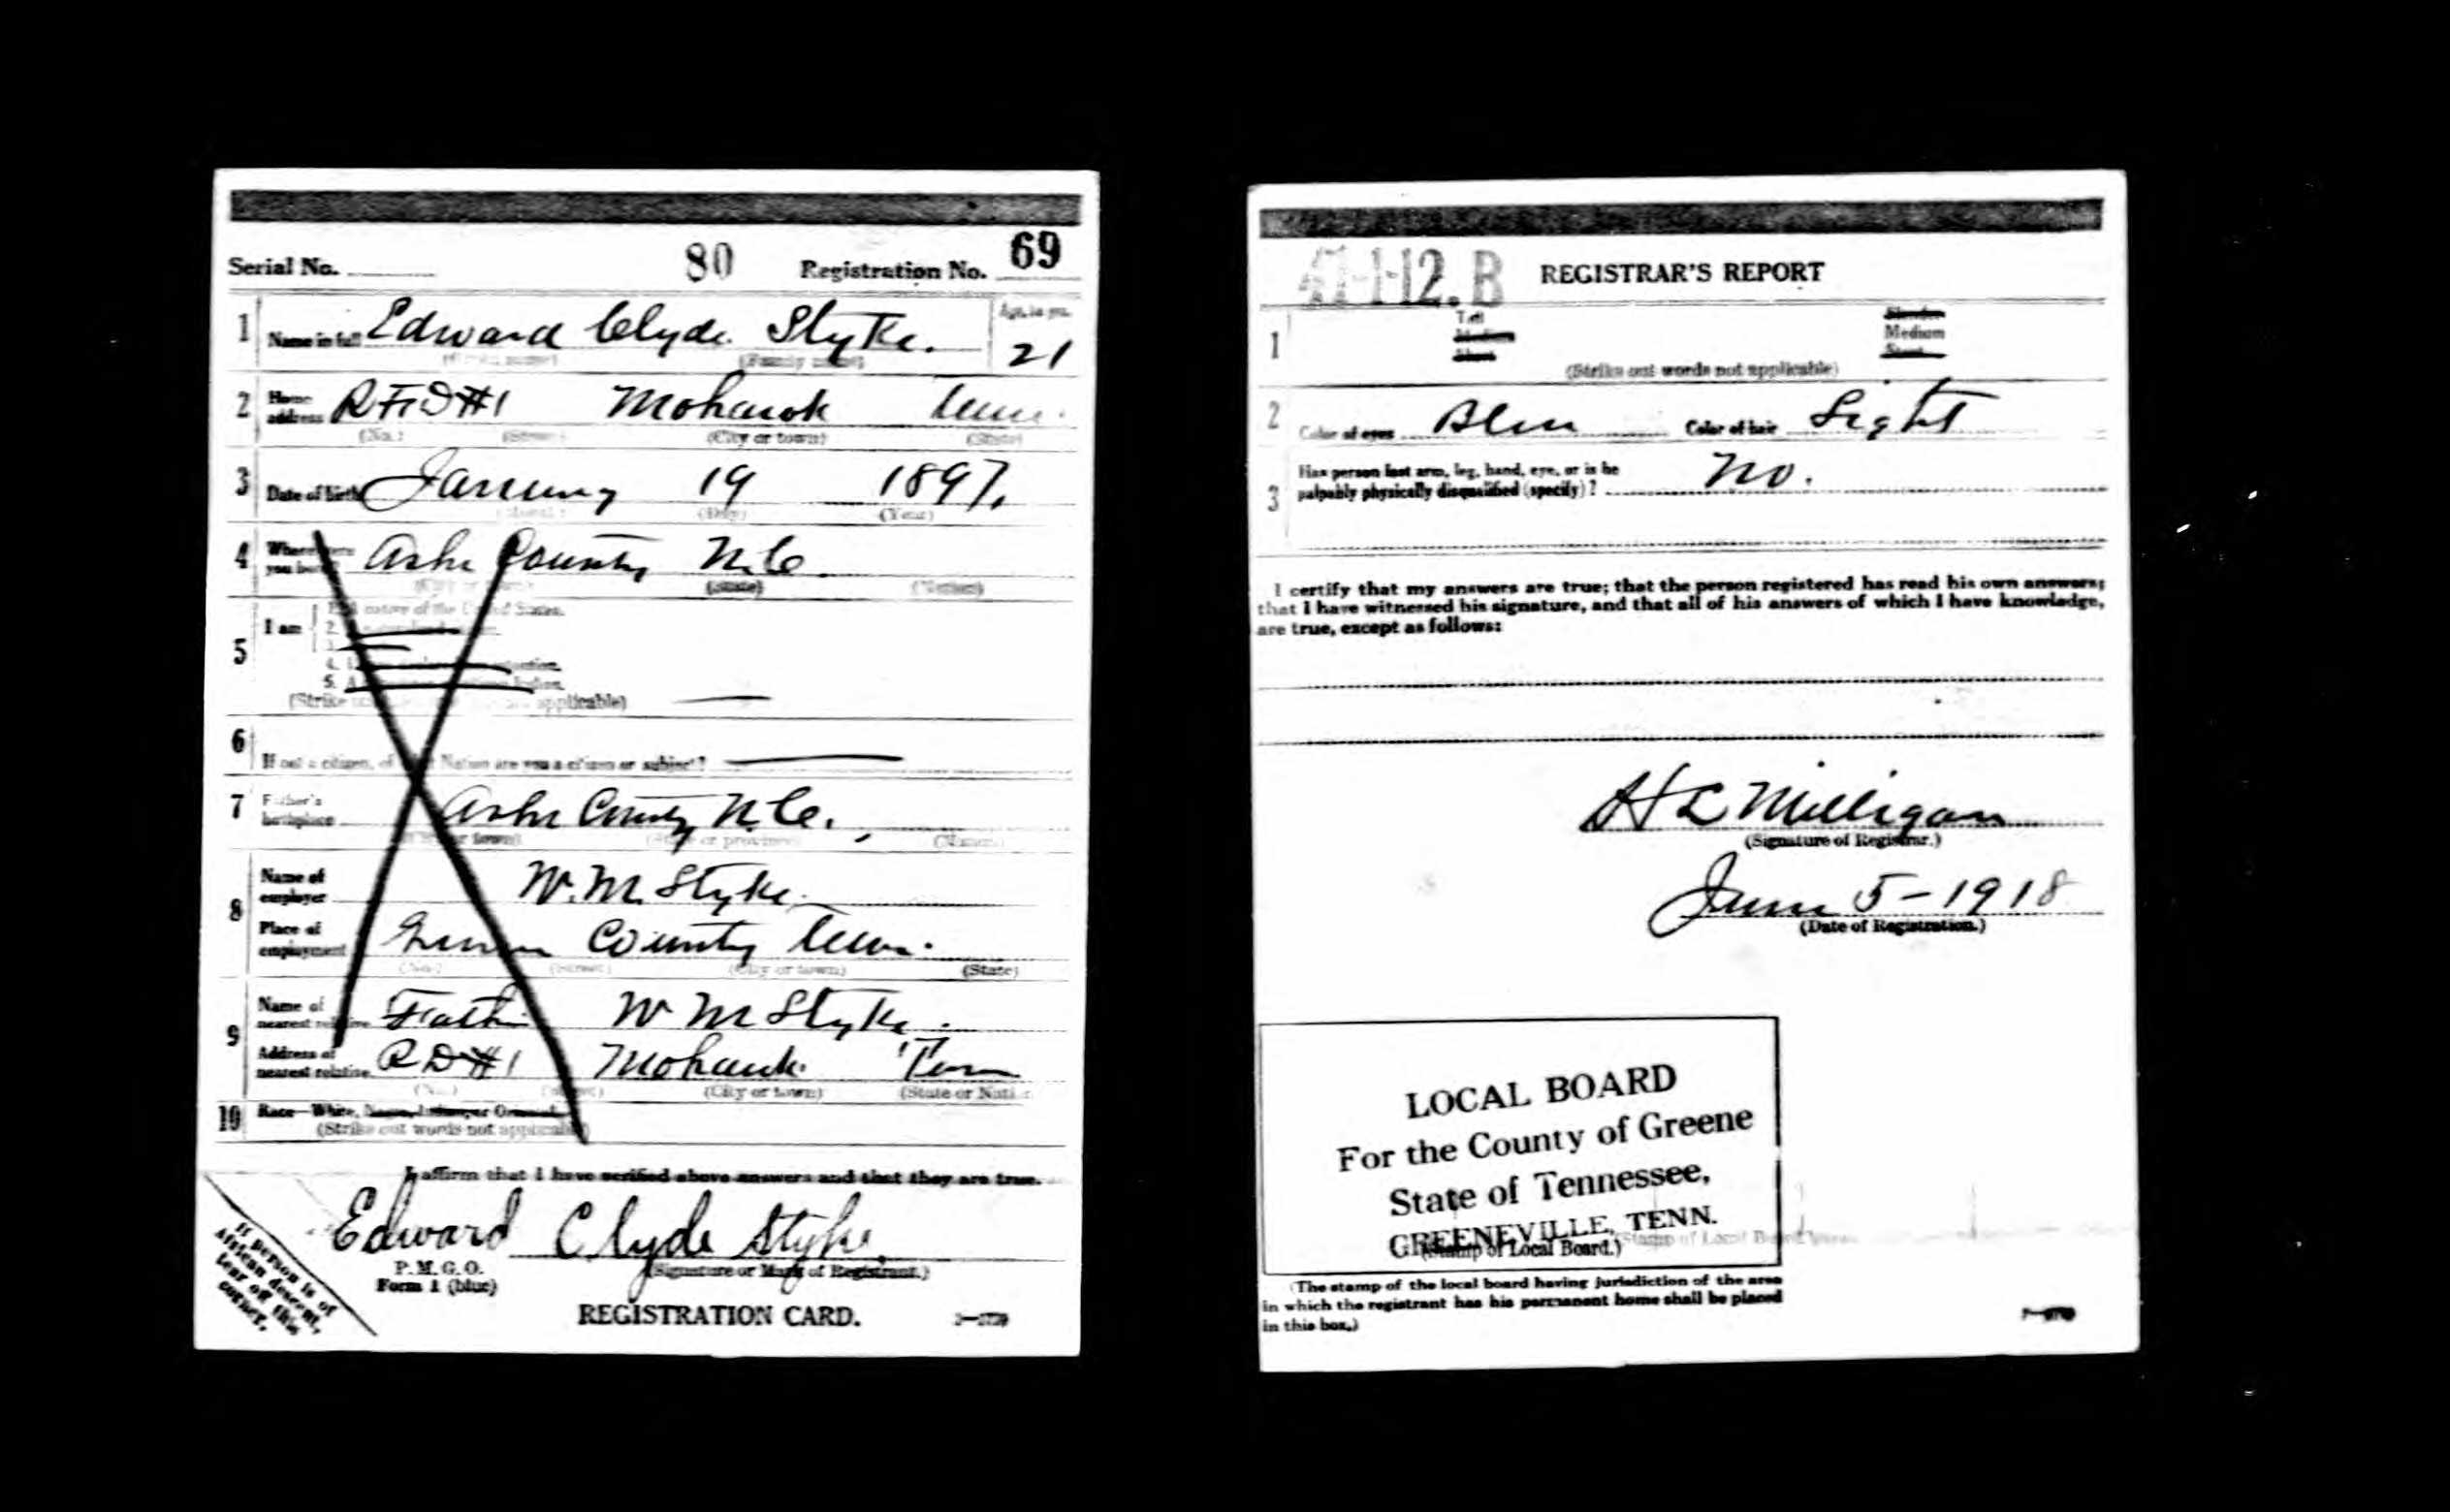 Serial No. 80 Registration No. 69
1 Name in full Edward Clyde Styke. Age, in yrs. 21
(Given name) (Family name)
2 Home address RFD#1 Mohawk Tenn.
(No.) (Street) (City or town) (State)
3 Date of birth January 19 1897.
(Month) (Day) (Year)
4 Where were you born? Ashe County N.C.
(State) (Nation)
I am 1. A native of the United States.
2.
3.
5 4.
5. A
(Strike out applicable)
6 If not a citizen, of what Nation are you a citizen or subject?
7 Father's birthplace Ashe County N.C.
(City or town) (State or province) (Nation)
8 Name of employer W.M. Styke.
Place of employment Greene County Tenn.
(No.) (Street) (City or town) (State)
9 Name of nearest relative Father W M Styke.
Address of nearest relative RD#1 Mohawk Tenn
(No.) (Street) (City or town) (State or Nation)
10 Race—White, Negro, Indian, or Oriental
(Strike out words not applicable)
I affirm that I have verified above answers and that they are true.
Edward Clyde Styke
P.M.G.O. (Signature or Mark of Registrant.)
Form 1 (blue)
If person is of
African descent,
tear off this
corner.
REGISTRATION CARD.
41-1-12. B REGISTRAR'S REPORT
1 Tall Slender
Medium Medium
Short Stout
(Strike out words not applicable)
2 Color of eyes Blue Color of hair Light
3 Has person lost arm, leg, hand, eye, or is he
palpably physically disqualified (specify)? No.
I certify that my answers are true; that the person registered has read his own answers;
that I have witnessed his signature, and that all of his answers of which I have knowledge,
are true, except as follows:
H L Milligan
(Signature of Registrar.)
June 5-1918
(Date of Registration.)
LOCAL BOARD
For the County of Greene
State of Tennessee,
GREENEVILLE, TENN.
(Stamp of Local Board.)
(The stamp of the local board having jurisdiction of the area
in which the registrant has his permanent home shall be placed
in this box.)